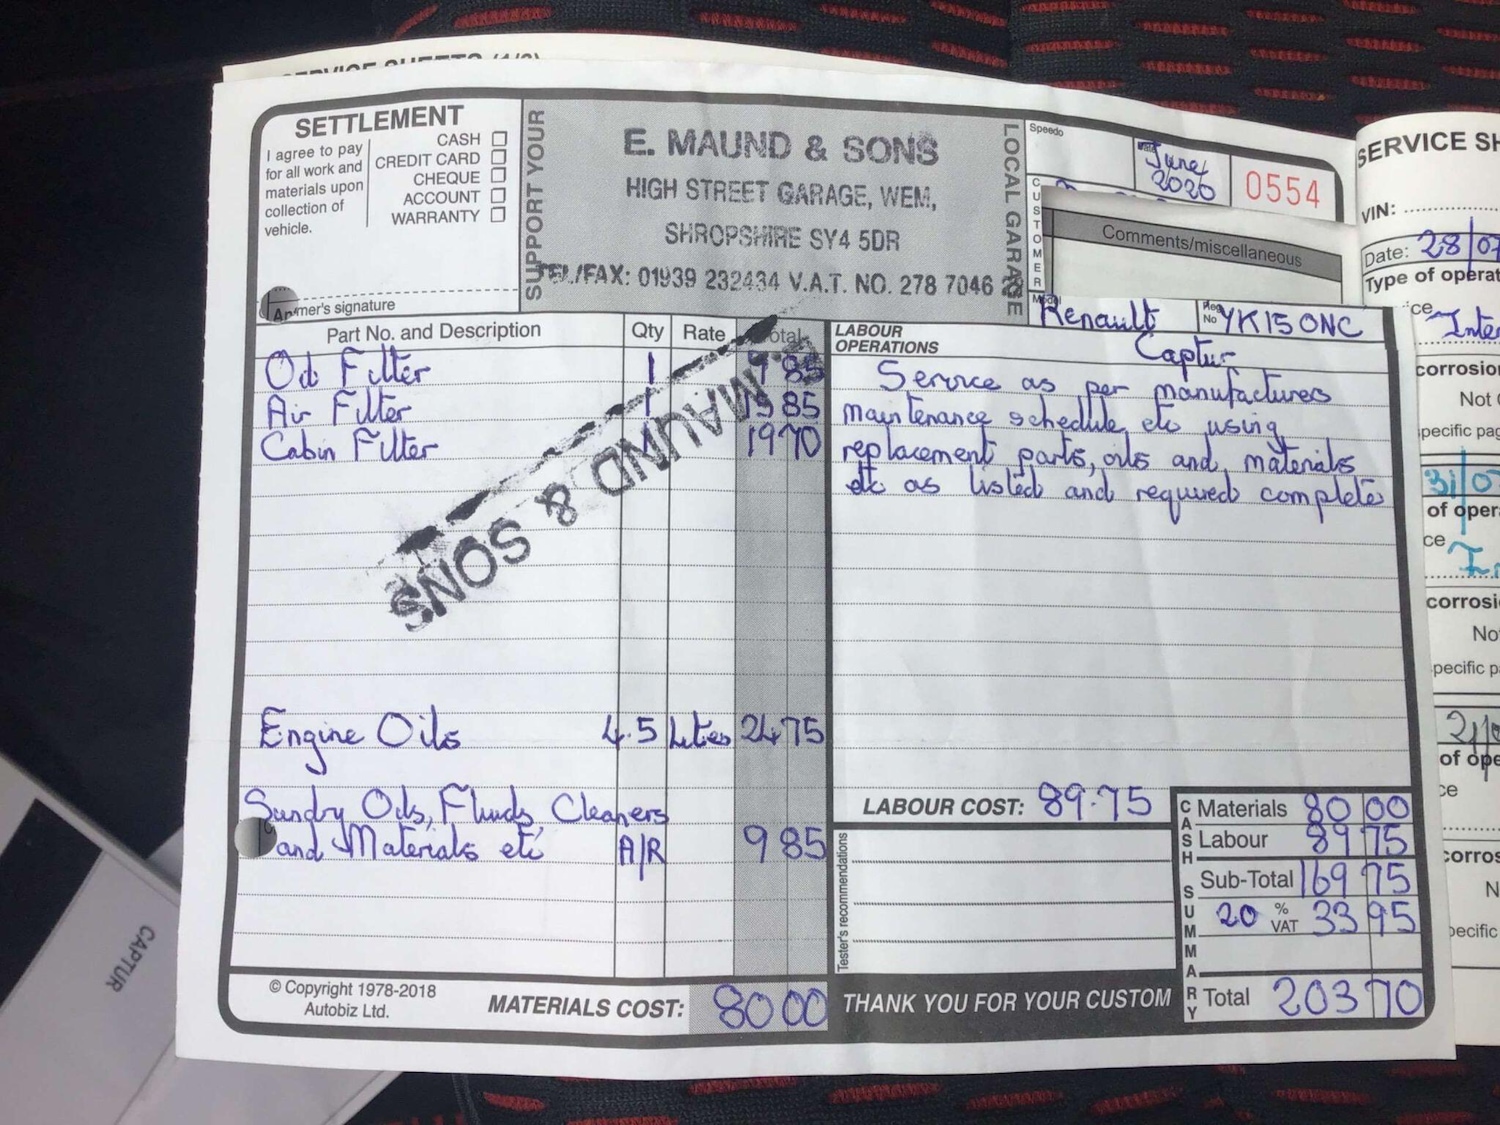 SERVICE SHEETS (1/3)
SETTLEMENT
I agree to pay
for all work and
materials upon
collection of
vehicle.
CASH
CREDIT CARD
CHEQUE
ACCOUNT
WARRANTY
mer's signature
SUPPORT YOUR
E. MAUND & SONS
HIGH STREET GARAGE, WEM,
SHROPSHIRE SY4 5DR
TEL/FAX: 01939 232434 V.A.T. NO. 278 7046
LOCAL GARAGE
Speedo
June
2020
0554
CUSTOMER
Comments/miscellaneous
Model
Renault
Reg
No
YK15 ONC
Captur
Part No. and Description Qty Rate Total
Oil Filter 1 9 85
Air Filter 1 15 85
Cabin Filter 1 19 70
MAUND & SONS
Engine Oils 4.5 Litres 24 75
Sundry Oils, Fluids, Cleaners
and Materials etc A/R 9 85
© Copyright 1978-2018
Autobiz Ltd.
MATERIALS COST: 80 00
LABOUR
OPERATIONS
Service as per manufacturers
maintenance schedule etc using
replacement parts, oils and materials
etc as listed and required complete
LABOUR COST: 89.75
Tester's recommendations
CASH SUMMARY
Materials 80 00
Labour 89 75
Sub-Total 169 75
20 % VAT 33 95
Total 203 70
THANK YOU FOR YOUR CUSTOM
SERVICE SH
VIN:
Date: 28/07
Type of operat
ice
Inte
corrosion
Not
specific pag
31/07
of opera
ce
In
corrosi
No
specific p
21/0
of ope
ce
corros
N
pecific
CAPTUR